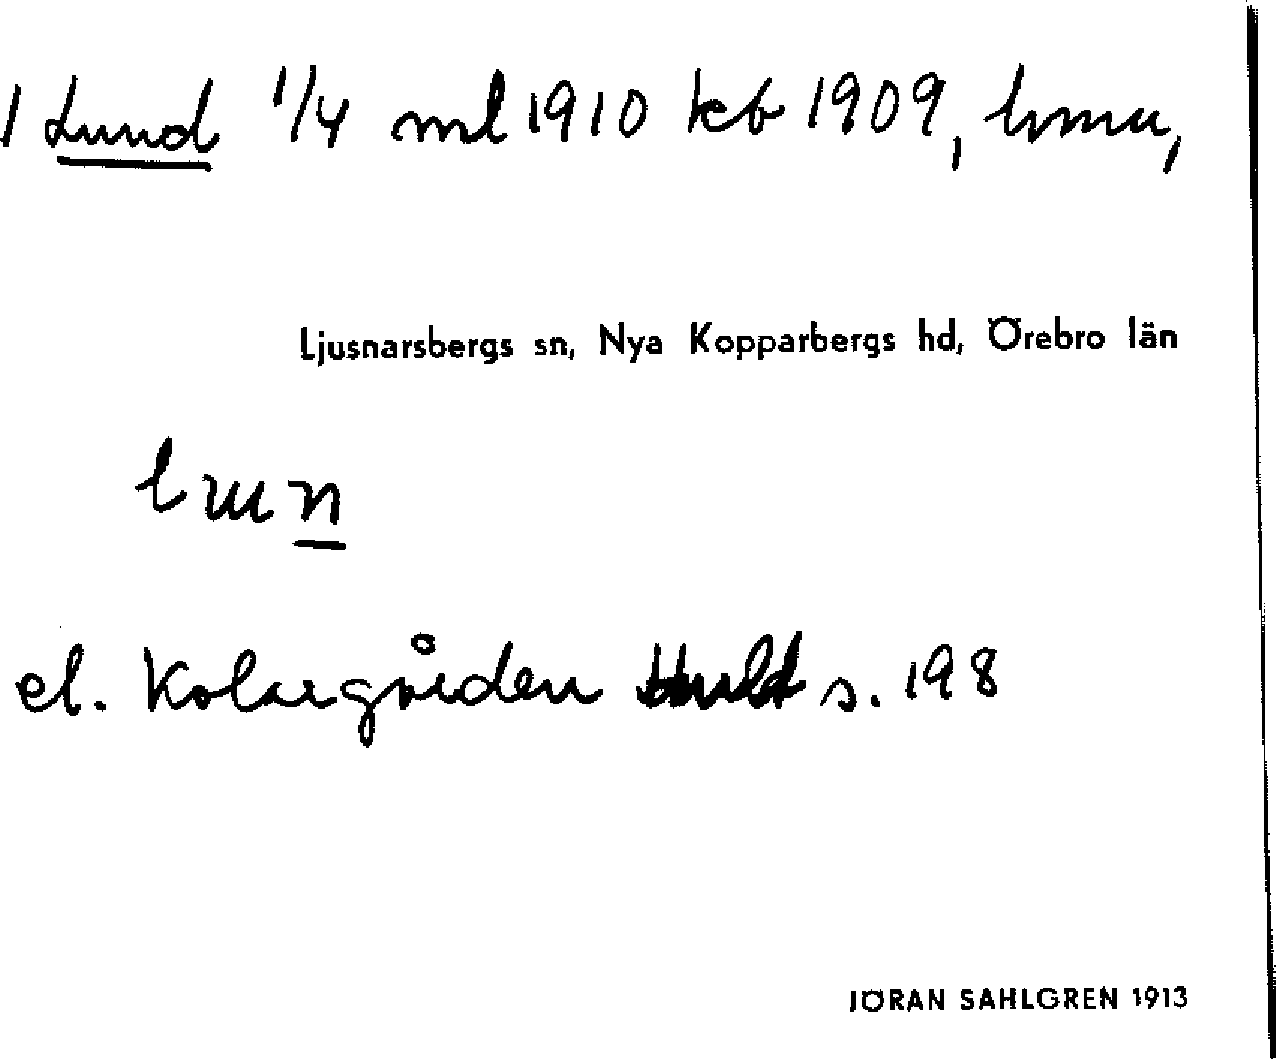 1 Lund 1/4 ml 1910 kb 1909, hmu,
Ljusnarsbergs sn, Nya Kopparbergs hd, Örebro län
el. Kolargården s. 198
JÖRAN SAHLGREN 1913